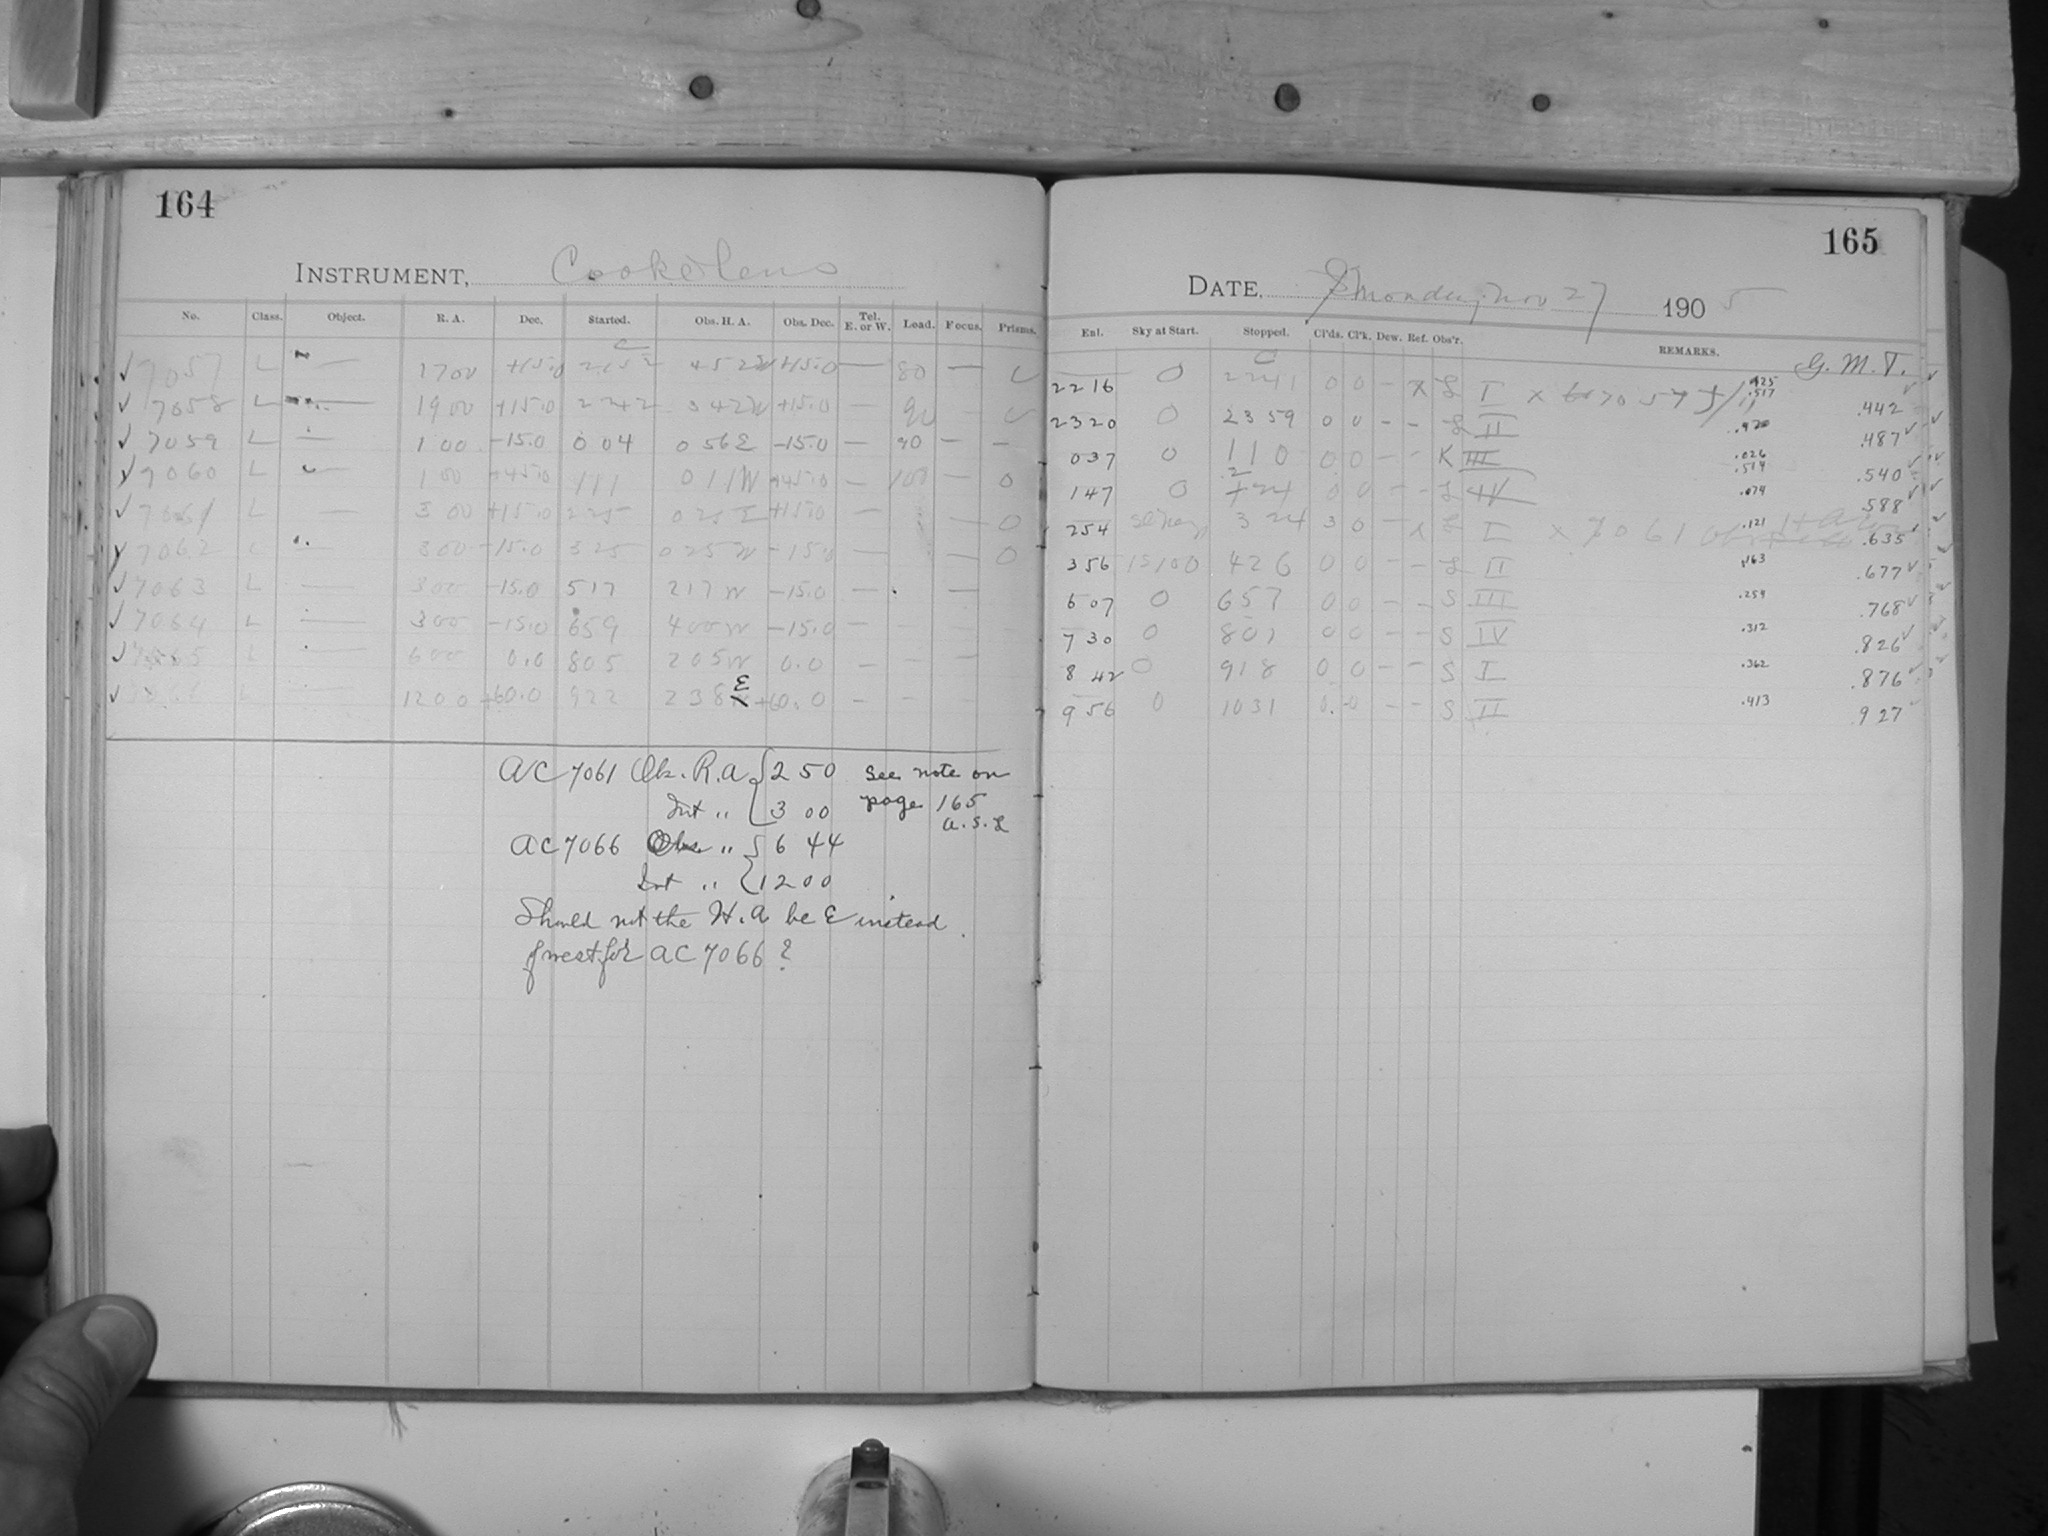 164
INSTRUMENT, Cooke lens
No. Class. Object. R. A. Dec. Started. Obs. H. A. Obs. Dec. Tel. E. or W. Load. Focus. Prisms.
✓ 7057 L — 1700 +15.0 2152 452W +15.0 — 80 —
✓ 7058 L — 1900 +15.0 2242 342W +15.0 — 90
✓ 7059 L — 1 00 -15.0 0 04 0 56E -15.0 — 90 — —
✓ 7060 L — 1 00 +45.0 111 011W +45.0 — 100 — 0
✓ 7061 L — 3 00 +15.0 225 025E +15.0 — 0
✓ 7062 L — 300 -15.0 325 025W -15.0 — — 0
✓ 7063 L — 300 -15.0 517 217W -15.0 — —
✓ 7064 L — 300 -15.0 659 400W -15.0 —
✓ 7065 L — 600 0.0 805 205W 0.0 — — —
✓ 7066 L 1200 +60.0 922 238 E +60.0 — —
AC 7061 Ob. R.A 2 50 see note on
Int " 3 00 page 165
a.S.L
AC 7066 Obs " 6 44
Int " 12 00
Should not the H.A be E instead
of west for AC 7066 ?
165
DATE, Monday, Nov 27 1905
Ent. Sky at Start. Stopped. Cl'ds. Cl'k. Dew. Ref. Obs'r. REMARKS. G. M. T.
2216 0 2241 0 0 — x L I x 7057 .517 .442
2320 0 2359 0 0 - - L II .487
037 0 110 0 0 - - K III .026 .514 .540
147 0 224 0 0 - - L IV .074 .588
254 324 3 0 - x L I x 7061 .121 .635
356 15100 426 0 0 - - L II .163 .677
607 0 657 0 0 - - S III .254 .768
730 0 801 0 0 - - S IV .312 .826
8 42 0 918 0 0 - - S I .362 .876
956 0 1031 0 0 - - S II .413 .927